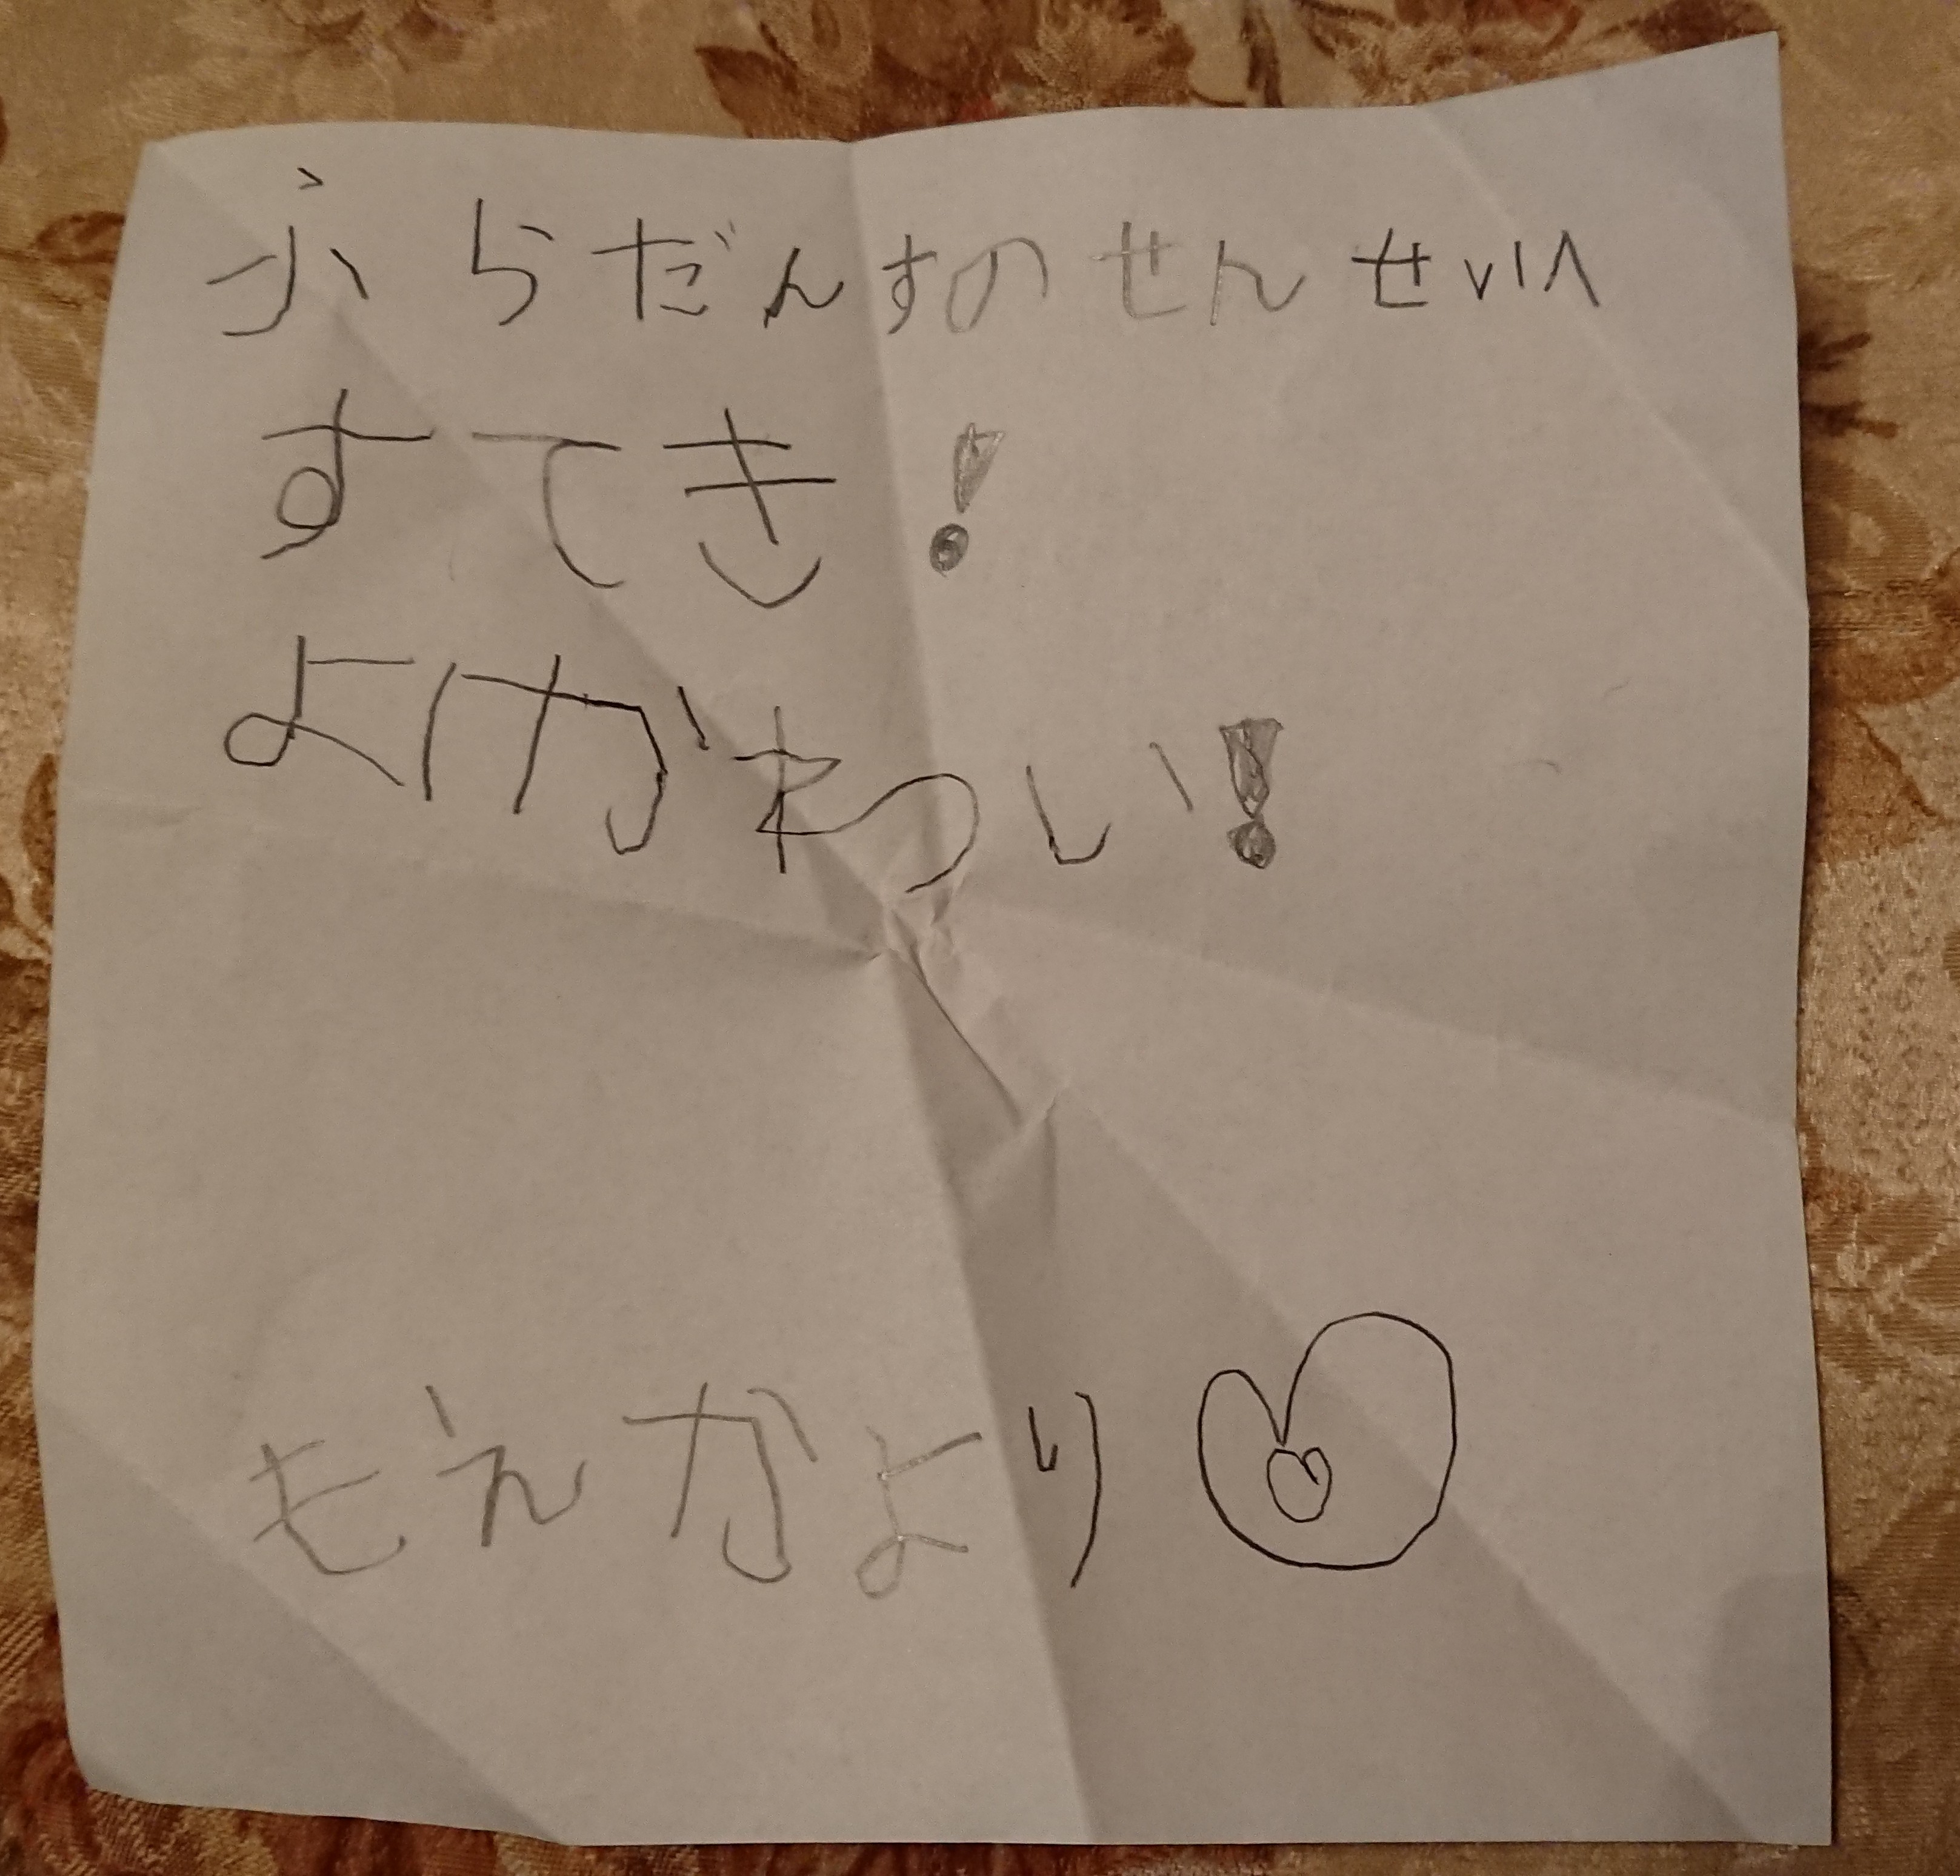 ふらだんすのせんせいへ
すてき!
よけかわつい!
もえかより